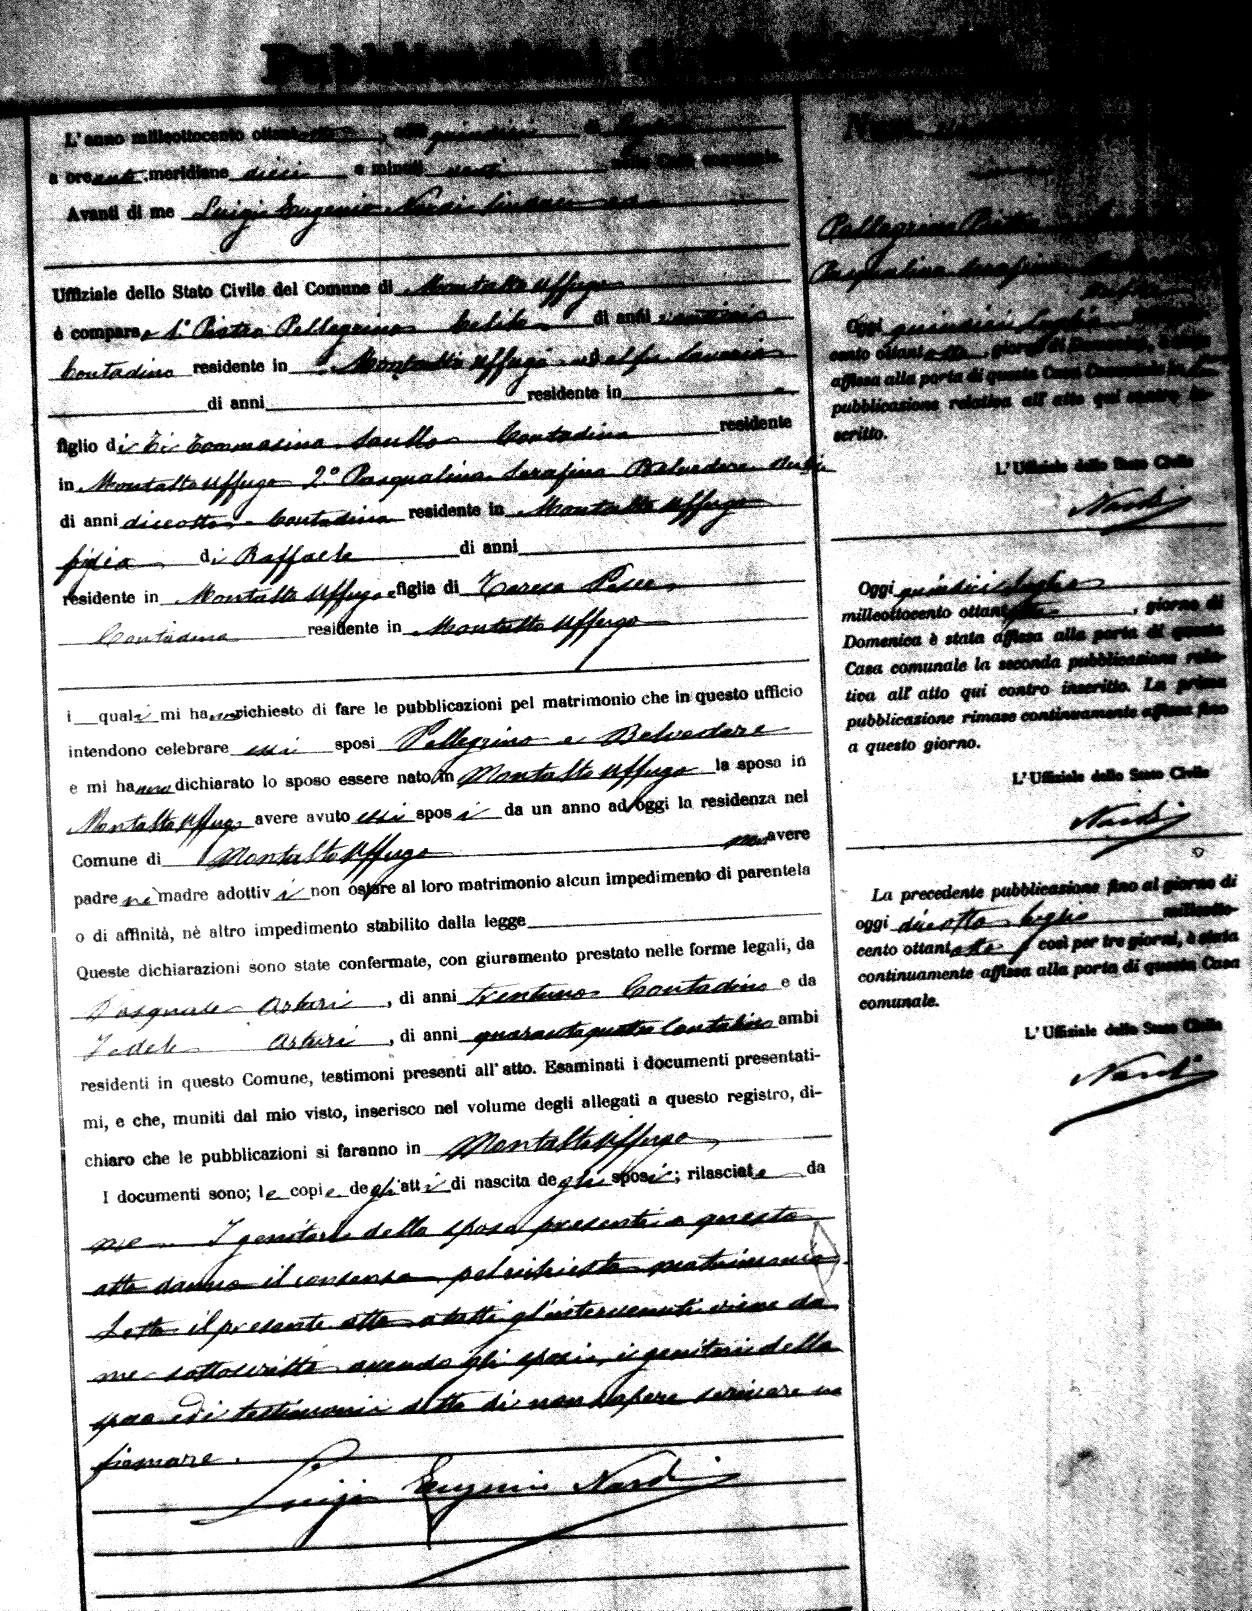 Pubblicazioni di
L'anno milleottocento ottant, quindici
a ore anti meridiane dieci e minuti venti nella Casa comunale.
Avanti di me Luigi Eugenio Nardi Sindaco ed
Uffiziale dello Stato Civile del Comune di Montalto Uffugo
è compars 1° Pietro Pellegrino Celibe di anni
Contadino residente in Montalto Uffugo
di anni residente in
figlio di Tommasina Contadina residente
in Montalto Uffugo 2° Pasqualina Serafina Belvedere Nubile
di anni diciotto Contadina residente in Montalto Uffugo
figlia di Raffaele di anni
residente in Montalto Uffugo e figlia di Teresa Pesce
Contadina residente in Montalto Uffugo
i quali mi hanno richiesto di fare le pubblicazioni pel matrimonio che in questo ufficio
intendono celebrare essi sposi Pellegrino e Belvedere
e mi hanno dichiarato lo sposo essere nato in Montalto Uffugo la sposa in
Montalto Uffugo avere avuto essi sposi da un anno ad oggi la residenza nel
Comune di Montalto Uffugo non avere
padre nè madre adottivi non ostare al loro matrimonio alcun impedimento di parentela
o di affinità, nè altro impedimento stabilito dalla legge
Queste dichiarazioni sono state confermate, con giuramento prestato nelle forme legali, da
Pasquale Arturi, di anni trentuno Contadino e da
Fedele Arturi, di anni quarantaquattro Contadino ambi
residenti in questo Comune, testimoni presenti all'atto. Esaminati i documenti presentati-
mi, e che, muniti dal mio visto, inserisco nel volume degli allegati a questo registro, di-
chiaro che le pubblicazioni si faranno in Montalto Uffugo
I documenti sono; le copie degli atti di nascita degli sposi; rilasciate da
me I genitori della sposa presenti a questo
atto danno il consenso pel richiesto matrimonio
Letto il presente atto a tutti gl'intervenuti viene da
me sottoscritto avendo gli sposi, i genitori della
sposa ed i testimoni detto di non sapere scrivere ne
firmare.
Luigi Eugenio Nardi
Num.
Pellegrino Pietro
Pasqualina Serafina
Oggi quindici luglio
cento ottantotto, giorno di Domenica, è stata
affissa alla porta di questa Casa Comunale la
pubblicazione relativa all'atto qui contro in-
scritto.
L'Uffiziale dello Stato Civile
Nardi
Oggi quindici luglio
milleottocento ottantotto, giorno di
Domenica è stata affissa alla porta di questa
Casa comunale la seconda pubblicazione rela-
tiva all'atto qui contro inscritto. La prima
pubblicazione rimase continuamente affissa fino
a questo giorno.
L'Uffiziale dello Stato Civile
Nardi
La precedente pubblicazione fino al giorno di
oggi diciotto luglio milleotto-
cento ottantotto, e così per tre giorni, è stata
continuamente affissa alla porta di questa Casa
comunale.
L'Uffiziale dello Stato Civile
Nardi